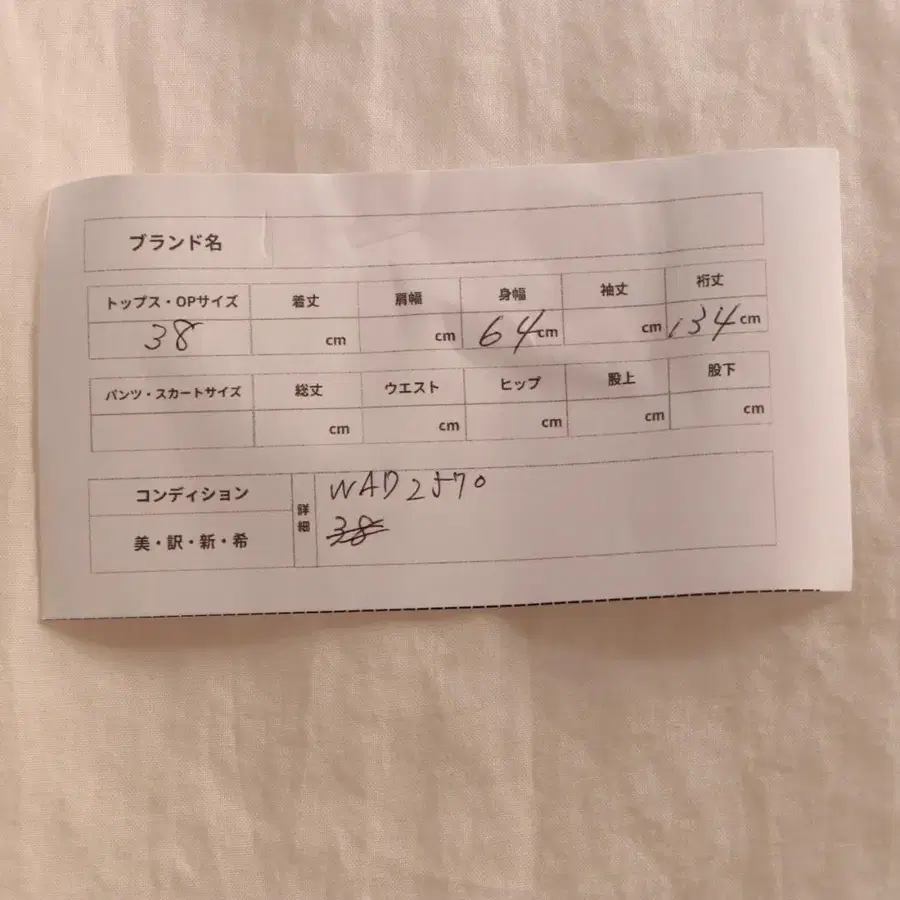 ブランド名
トップス・OPサイズ 着丈 肩幅 身幅 袖丈 裄丈
38 cm cm 64cm cm 134cm
パンツ・スカートサイズ 総丈 ウエスト ヒップ 股上 股下
cm cm cm cm cm
コンディション 詳細 WAD2570
美・訳・新・希 38